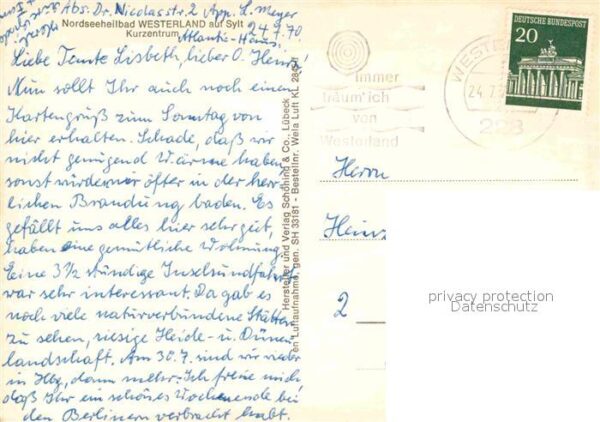 Abs: Dr. Nicolasstr. 2 App. L. Meyer
Nordseeheilbad WESTERLAND auf Sylt
24.7.70
Kurzentrum
Atlantic-Haus
Liebe Tante Lisbeth, lieber O. Heinz!
Nun sollt Ihr auch noch einen
Kartengruß zum Sonntag von
hier erhalten. Schade, daß wir
nicht genügend Wärme haben,
sonst würden wir öfter in der herr-
lichen Brandung baden. Es
gefällt uns alles hier sehr gut,
haben eine gemütliche Wohnung.
Eine 3½ stündige Inselrundfahrt
war sehr interessant. Da gab es
noch viele naturverbundene Stätten
zu sehen, riesige Heide- u. Dünen-
landschaft. Am 30.7. sind wir wieder
in Hbg, dann mehr. Ich freue mich,
daß Ihr ein schönes Wochenende bei
den Berlinern verbracht habt.
Hersteller und Verlag Schöning & Co., Lübeck
en Luftaufnahme, gen. SH 33181 - Bestellnr. Wela Luft KL
immer
träum' ich
von
Westerland
24.7.
228
DEUTSCHE BUNDESPOST
20
Herrn
Heinz
2
privacy protection
Datenschutz